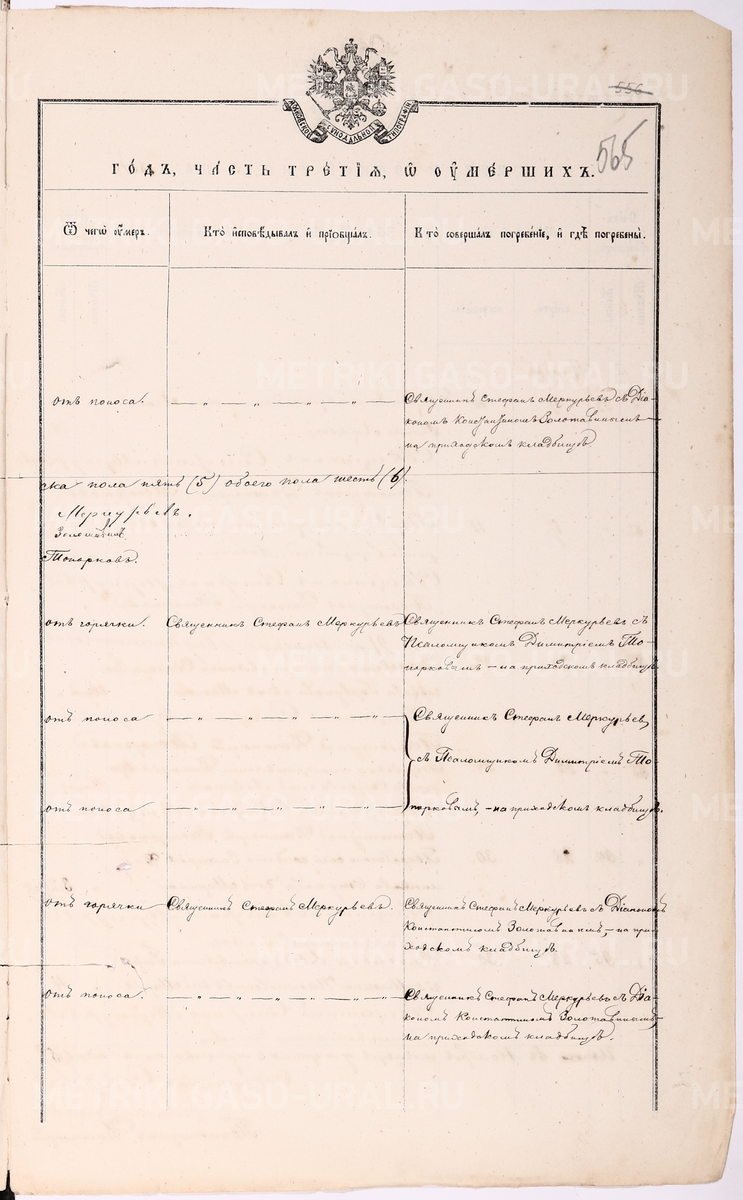 556
565
МОСКОВСКОЙ СѴНОДАЛЬНОЙ ТИПОГРАФІИ
ГО́ДЪ, ЧА́СТЬ ТРЕ́ТІѦ, Ѡ҆ ОУ҆МЕ́РШИХЪ.
Ѿ чегѡ̀ оу҆́меръ.
Кто̀ и҆сповѣ́дывалъ и҆ прїѡбща́лъ.
Кто̀ соверша́лъ погребе́нїе, и҆ гдѣ̀ погребены̀.
отъ поноса. — „ — „ — „ — „ —
Священникъ Стефанъ Меркурьевъ съ Діа-
кономъ Константиномъ Золотавинымъ —
на приходскомъ кладбищѣ.
ска пола пять (5) обоего пола шесть (6).
Меркурьевъ.
Топорковъ.
отъ горячки. Священникъ Стефанъ Меркурьевъ
Священникъ Стефанъ Меркурьевъ съ
Псаломщикомъ Димитріемъ То-
порковымъ — на приходскомъ кладбищѣ.
отъ поноса — „ — „ — „ — „ — „ —
Священникъ Стефанъ Меркурьев,
съ Псаломщикомъ Димитріемъ То-
отъ поноса — „ — „ — „ — „ —
порковымъ, — на приходскомъ кладбищѣ.
отъ горячки Священникъ Стефанъ Меркурьевъ.
Священникъ Стефанъ Меркурьевъ съ Діакономъ
Константиномъ Золотавинымъ, — на при-
ходскомъ кладбищѣ.
отъ поноса. — „ — „ — „ — „ —
Священникъ Стефанъ Меркурьевъ съ Діа-
кономъ Константиномъ Золотавинымъ,
на приходскомъ кладбищѣ.
METRIKI.GASO-URAL.RU